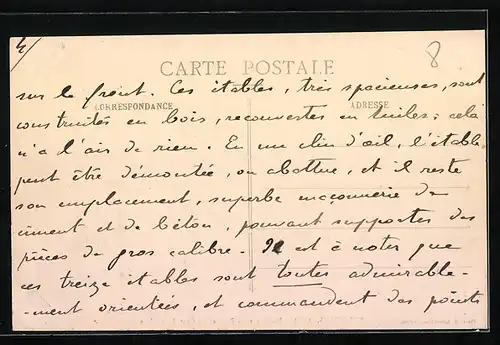 4/
8
CARTE POSTALE
sur le front. Ces étables, très spacieuses, sont
CORRESPONDANCE
ADRESSE
construites en bois, recouvertes en tuiles; cela
n'a l'air de rien. En un clin d'œil, l'étable
peut être démontée, ou abattue, et il reste
son emplacement, superbe maçonnerie de
ciment et de béton, pouvant supporter des
pièces de gros calibre. Il est à noter que
ces treize étables sont toutes admirable-
-ment orientées, et commandent des points